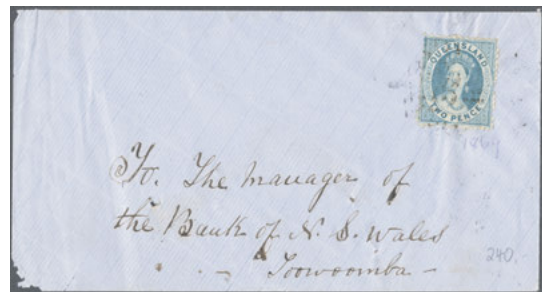 QUEENSLAND
TWO PENCE
1869
To. The manager of
the Bank of N. S. Wales
Toowoomba -
240.-